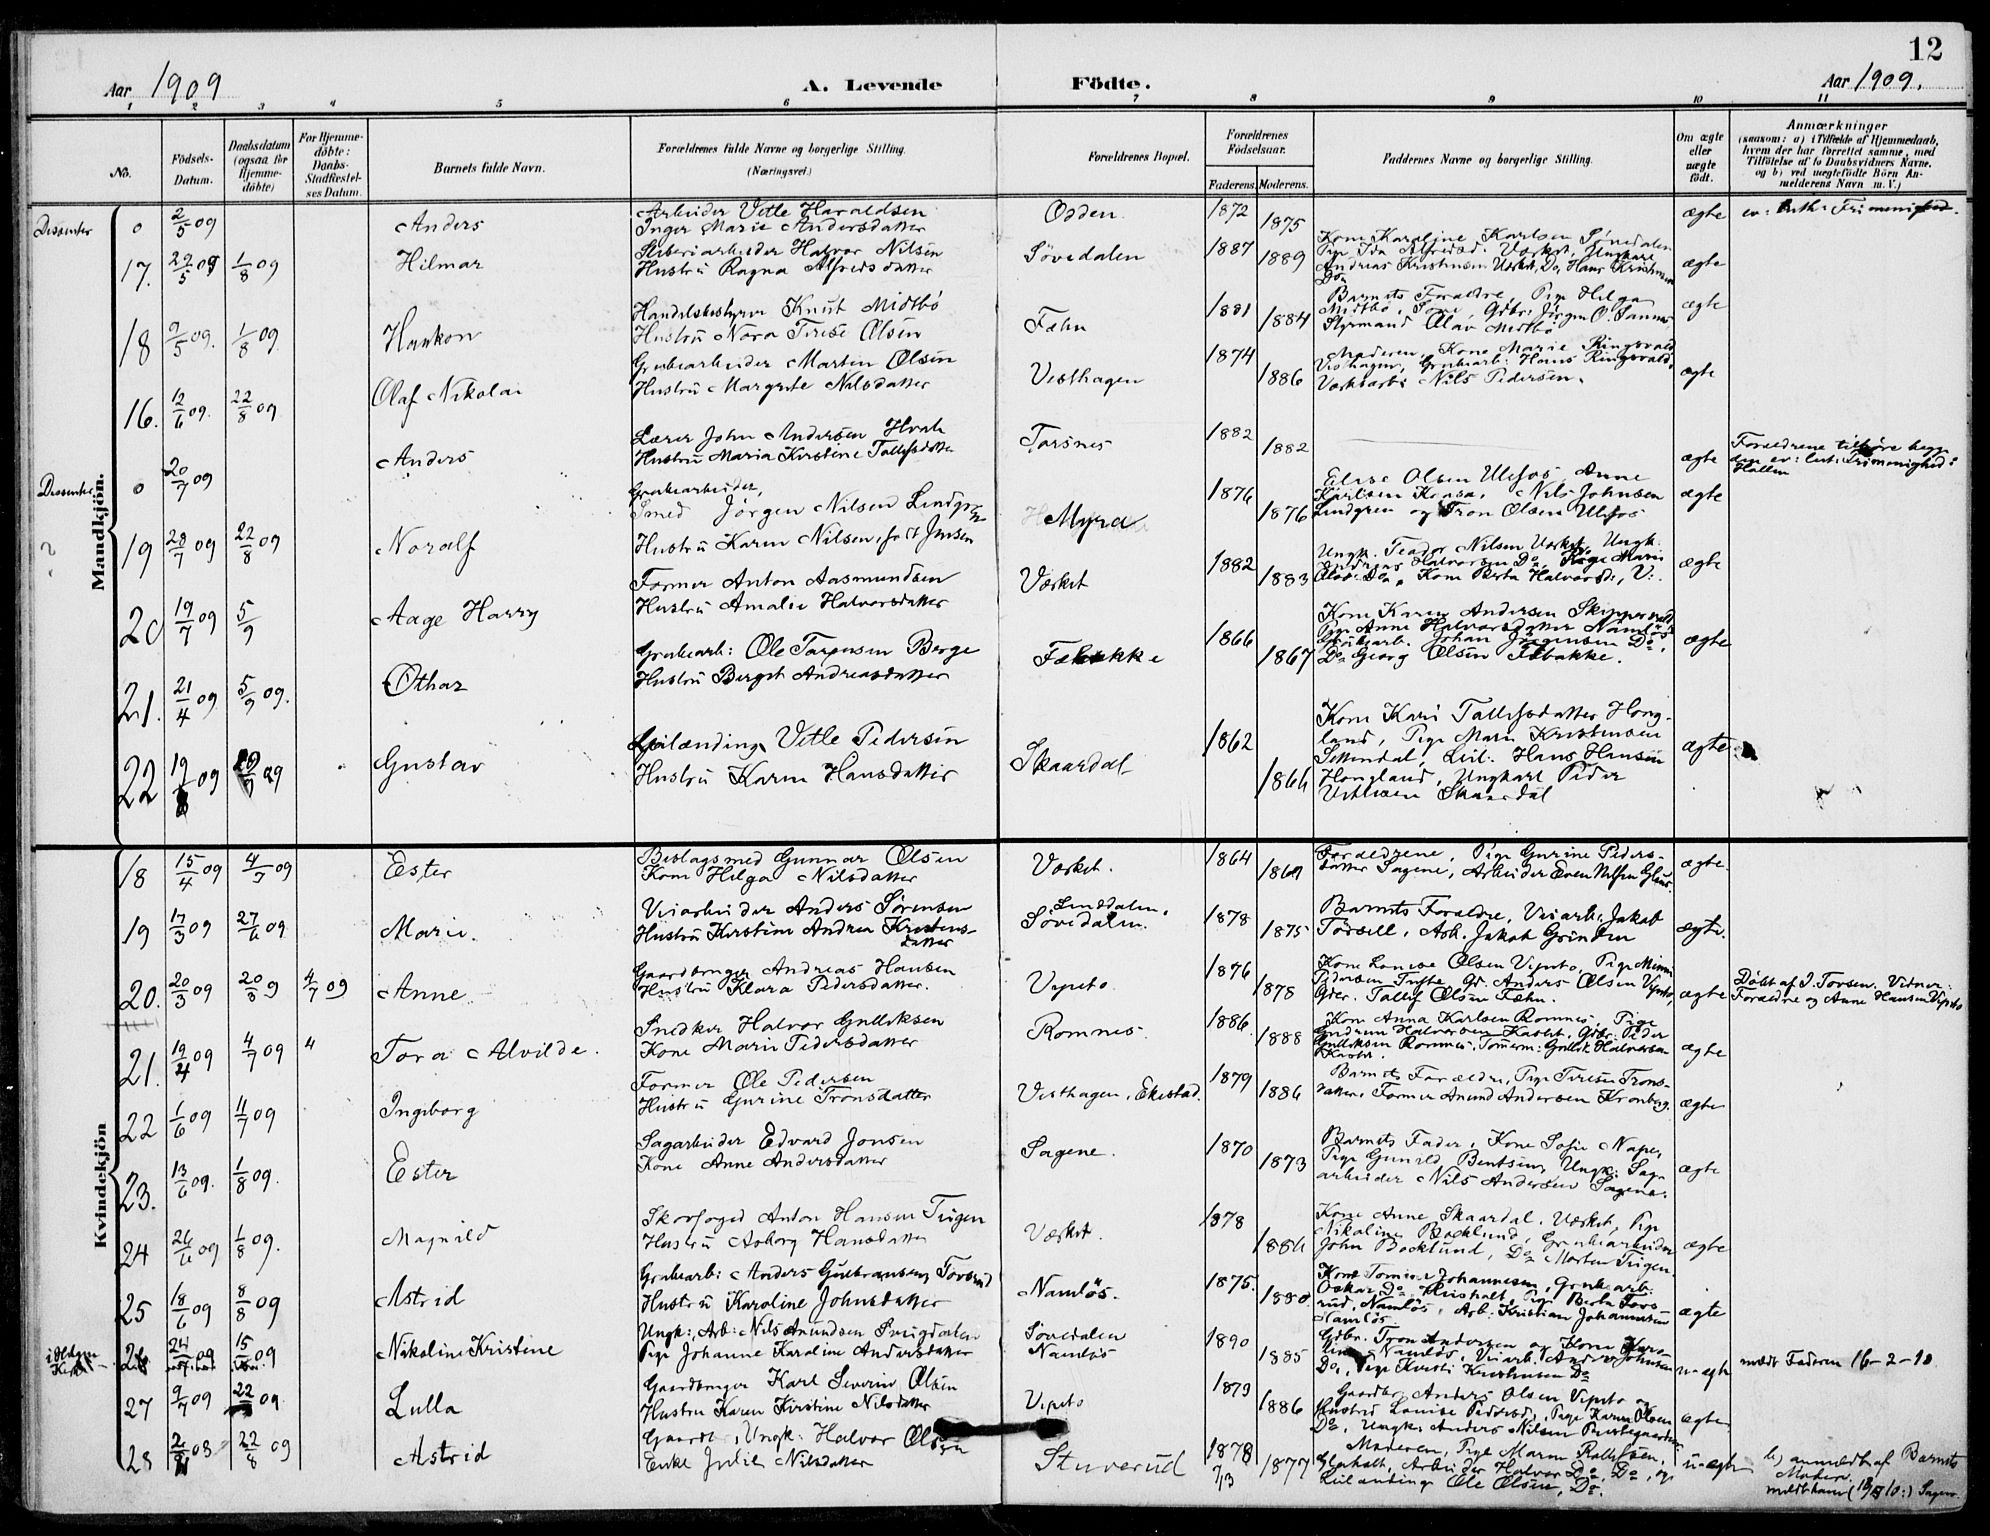 12
Aar 1909
A. Levende
Födte.
Aar 1909.
1 2 3 4 5 6 7 8 9 10 11
No.
Födsels-Datum.
Daabsdatum (ogsaa for Hjemme-döbte)
For Hjemme-döbte: Daabs-Stadfæstel-ses Datum.
Barnets fulde Navn.
Forældrenes fulde Navne og borgerlige Stilling.
(Næringsvei.)
Forældrenes Bopæl.
Forældrenes Födselsaar.
Faderens. Moderens.
Faddernes Navne og borgerlige Stilling.
Om ægte eller uægte födt.
Anmærkninger
(saasom: a) i Tilfælde af Hjemmedaab, hvem der har forrettet samme, med Tilföielse af to Daabsvidners Navne, og b) ved uægtefödte Börn Anmelderens Navn m. V.)
Mandkjön.
Dissenter 0 2/5 09 Anders
Arbeider Vetle Haraldsen
Inger Marie Andersdatter
Odden 1872 1875 ægte ev: luth: Frimenighed.
17. 1/8 09 Hilmar
Sliberiarbeider Halvor Nilsen
Hustru Ragna Alfredsdatter
Sövedalen 1887 1889
Kone Karoline Karlsen Sönedalen
Pige Ida Alfredsd. Værket, Ungkarl
Andreas Kristensen Værket, Do, Hans Kristensen
Do
ægte
18 9/5 09. 1/8 09. Haakon
Handelsbestyrer Knut Midtbö
Hustru Nora Tirese Olsen
Fæhn 1881 1884
Barnets Forældre, Pige Helga
Midtbö, Gdbr: Jörgen O. Sannes
Styrmand Olav Midtbö
ægte
16. 12/6 09. 22/8 09 Olaf Nikolai
Grubearbeider Martin Olsen
Hustru Margrete Nilsdatter
Visthagen 1874 1886
Moderen, Kone Marie Ringsvold
Visthagen, Grubearb: Hans Ringsvold,
Værksarb: Nils Pedersen.
ægte
Dissenter 0 20/7 09 Anders
Lærer John Andersen Hvala
Hustru Maria Kirstine Tallefsdatter
Torsnes 1882 1882 ægte
Forældrene tilhöre begge
den ev: lut: Frimenighed i
Hollen
19 28/7 09 22/8 09 Noralf
Grubearbeider,
Smed Jörgen Nilsen Lindgren
Hustru Karen Nilsen, født Jensen
Myra 1876 1876
Elise Olsen Ulefos, Anne
Karlsen Kaasa, Nils Johnsen
Lindgren og Tron Olsen Ulefos
ægte
20 19/7 09 5/9 Aage Harry
Former Anton Aasmundsen
Hustru Amalie Halvorsdatter
Værket 1882 1883
Ungk. Teodor Nilsen Værket, Ungk.
Andreas Halvorsen Do, Pige Marie
Olsen Do, Kone Berta Halvorsd:, V:.
ægte
21. 21/4 09 5/9 09. Othar
Grubearb: Ole Torgersen Berge
Hustru Berget Andreasdatter
1866 1867
Kone Karen Andersen Skippervold
Pige Anne Halvorsdatter Namlös
Grubearb. Johan Jörgensen Do,
Do Georg Olsen Febakke.
ægte
22 09 Gustav
Leilænding Vetle Pedersen
Hustru Karen Hansdatter
Skaardal 1862 1866
Kone Kari Tallefsdatter Hong-
land, Pige Marie Kristensen
Settendal, Leil. Hans Hansen
Hongland, Ungkarl Peder
Vetlesen Skaardal
ægte
Kvindekjön
18 15/4 09 4/7 09 Ester
Beslagsmed Gunnar Olsen
Kone Helga Nilsdatter
Værket. 1864
Forældrene, Pige Gurine Peders-
datter Sagene, Arbeider Even Nilsen
ægte
19 17/3 09 27/6 09 Marie.
Veiarbeider Anders Sörensen
Hustru Kirstine Andrea Kristens-
datter
Sönedalen. 1878 1875
Barnets Forældre, Veiarb: Jakob
Torsell, Arb. Jakob Grinden
ægte.
20. 20/3 09 20/3 9 4/7 09 Anne
Gaardbruger Andreas Hansen
Hustru Klara Pedersdatter.
Vipeto 1876 1878
Kone Lovise Olsen Vipeto, Pige Minni
Pedersen Tufte, Gd. Anders Olsen Vipeto,
Gdbr. Tallef Olsen Fæhn.
ægte
Döbt af I. Torsen. Vidner:
Forældre og Anne Hansen Vipeto
21. 19/4 09 4/7 09 " Tora Alvilde.
Snedker Halvor Gulliksen
Kone Marie Pedersdatter
Romnes. 1886 1888
Kone Anna Karlsen Romnes, Pige
Gudrun Halvorsen Kastet, Gdbr. Peder
Gulliksen Romnes, Tømerm: Gullik Halvorsen
Kastet.
ægte
22 1/6 09 11/7 09 Ingeborg
Former Ole Pedersen
Hustru Gurine Tronsdatter
Visthagen, Ekestad. 1879 1886
Barnets Forældre, Pige Tirese Trons-
datter, Former Anund Andersen Kronberg.
ægte
23. 13/6 09. 1/8 09. Ester
Sagarbeider Edvard Jonsen
Kone Anne Andersdatter
Sagene. 1870 1873
Barnets Fader, Kone Sofie Nape,
Pige Gunild Bentsen, Ungk: Sag-
arbeider Nils Andersen Sagene.
ægte
24 26/6 09 1/8 09. Magnild
Skovfoged Anton Hansen Teigen
Hustru Aaborg Hansdatter
Værket. 1878
Kone Anne Skaardal, Værket, Pige
Nikoline Bocklund, Grubearbeider
John Bocklund, Do Morten Teigen.
ægte
25 18/6 09 8/8 09 Astrid
Grubearb: Anders Gulbransen Tovsrud
Hustru Karoline Johnsdatter
Namlös. 1875. 1880
Kone Tomine Johannesen, Grubearb:
Oskar Do, Pige Berta Tovs-
rud, Namlös, Arb. Kristian Johannesen
Namlös
ægte
i Holden Kirke 26 24/6 09 15/8 09 Nikoline Kristine
Ungk:, Arb: Nils Anundsen Snigdalen
Pige Johanne Karoline Andersdatter
Sövedalen
Namløs
1890 1885
Gdbr. Tron Andersen og Kone
Namlös, Veiarb. Andr. Johnsen
Do, Pige Kirsti Kristensen Do
u-ægte meldt Faderen 16-2-10
27 9/7 09 22/8 09 Lulla
Gaardbruger Karl Severin Olsen
Hustru Karen Kirstine Nilsdatter
Vipeto 1879 1886
Gaardbr. Anders Olsen Vipeto og
Hustru Lovise Pedersd., Pige Karen Olsen
Do, Ungk: Anders Nilsen Prestegaarden
ægte
28 22/8 09 Astrid
Gaardbr, Ungk: Halvor Olsen
Enke Julie Nilsdatter
Stuverud 1878 7/3 1877
Moderen, Pige Maren Rollefsen,
Arbeider Halvor Do, Do, og
Leilænding Ole Olsen, Do.
u-ægte
b) anmeldt af Barnets
Moder.